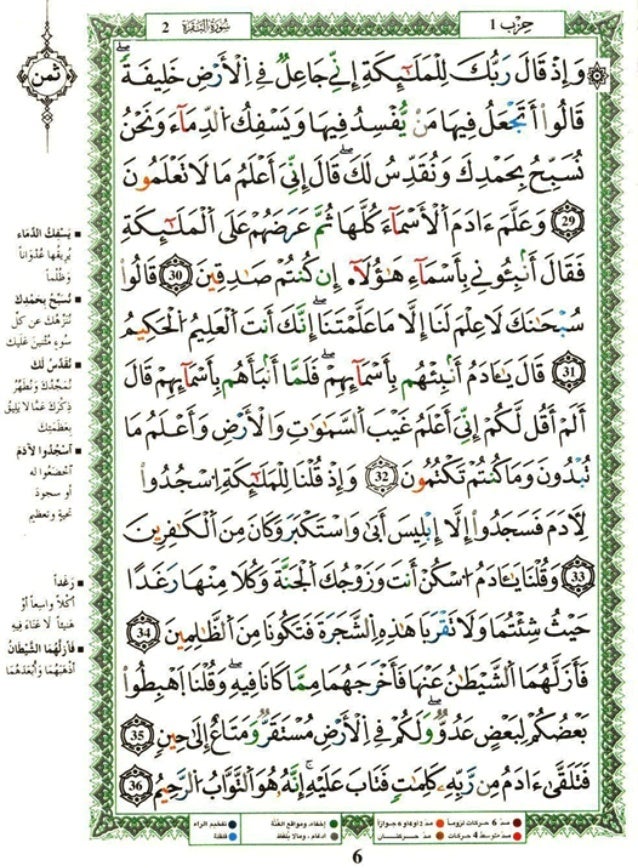 حِزْب 1
سُورَةُ الْبَقَرَةِ 2
ثمن
وَإِذْ قَالَ رَبُّكَ لِلْمَلَٰٓئِكَةِ إِنِّے جَاعِلٞ فِے اِ۬لْأَرْضِ خَلِيفَةٗ
قَالُوٓاْ أَتَجْعَلُ فِيهَا مَنْ يُّفْسِدُ فِيهَا وَيَسْفِكُ اُ۬لدِّمَآءَ وَنَحْنُ
نُسَبِّحُ بِحَمْدِكَ وَنُقَدِّسُ لَكَ قَالَ إِنِّيَ أَعْلَمُ مَا لَا تَعْلَمُونَ
29 وَعَلَّمَ ءَادَمَ اَ۬لْأَسْمَآءَ كُلَّهَا ثُمَّ عَرَضَهُمْ عَلَى اَ۬لْمَلَٰٓئِكَةِ
فَقَالَ أَنۢبِـُٔونِے بِأَسْمَآءِ هَٰٓؤُلَآءِ إِن كُنتُمْ صَٰدِقِينَ 30 قَالُواْ
سُبْحَٰنَكَ لَا عِلْمَ لَنَآ إِلَّا مَا عَلَّمْتَنَآ إِنَّكَ أَنتَ اَ۬لْعَلِيمُ اُ۬لْحَكِيمُ
31 قَالَ يَٰٓـَٔادَمُ أَنۢبِئْهُم بِأَسْمَآئِهِمْ فَلَمَّآ أَنۢبَأَهُم بِأَسْمَآئِهِمْ قَالَ
أَلَمْ أَقُل لَّكُمُ إِنِّيَ أَعْلَمُ غَيْبَ اَ۬لسَّمَٰوَٰتِ وَالْأَرْضِ وَأَعْلَمُ مَا
تُبْدُونَ وَمَا كُنتُمْ تَكْتُمُونَ 32 وَإِذْ قُلْنَا لِلْمَلَٰٓئِكَةِ اِ۟سْجُدُواْ
لِأٓدَمَ فَسَجَدُوٓاْ إِلَّآ إِبْلِيسَ أَبَىٰ وَاسْتَكْبَرَ وَكَانَ مِنَ اَ۬لْكَٰفِرِينَ
33 وَقُلْنَا يَٰٓـَٔادَمُ اُ۟سْكُنَ اَنتَ وَزَوْجُكَ اَ۬لْجَنَّةَ وَكُلَا مِنْهَا رَغَداً
حَيْثُ شِئْتُمَا وَلَا تَقْرَبَا هَٰذِهِ اِ۬لشَّجَرَةَ فَتَكُونَا مِنَ اَ۬لظَّٰلِمِينَ 34
فَأَزَلَّهُمَا اَ۬لشَّيْطَٰنُ عَنْهَا فَأَخْرَجَهُمَا مِمَّا كَانَا فِيهِ وَقُلْنَا اَ۪هْبِطُواْ
بَعْضُكُمْ لِبَعْضٍ عَدُوّٞ وَلَكُمْ فِے اِ۬لْأَرْضِ مُسْتَقَرّٞ وَمَتَٰعٌ إِلَىٰ حِينٖ 35
فَتَلَقَّىٰٓ ءَادَمُ مِن رَّبِّهِۦ كَلِمَٰتٖ فَتَابَ عَلَيْهِ إِنَّهُۥ هُوَ اَ۬لتَّوَّابُ اُ۬لرَّحِيمُ 36
■ يَسْفِكُ الدِّمَاء
يُرِيقُها عُدْوَاناً
وَظُلْماً
■ نُسَبِّحُ بِحَمْدِكَ
نُنَزِّهُكَ عن كلِّ
سُوء مُثْنِينَ عَليك
■ نُقَدِّسُ لَك
نُمَجِّدُكَ ونُطَهِّرُ
ذِكْرَكَ عَمَّا لا يَلِيقُ
بِعَظَمَتِكَ
■ اسْجُدُوا لآدَمَ
اخْضَعُوا له
أو سجودَ
تحية وتعظيم
■ رَغَداً
أكْلاً واسِعاً أوْ
هَنِيئاً لا عَنَاءَ فِيهِ
■ فَأَزَلَّهُمَا الشَّيْطَانُ
أذْهَبَهُمَا وَأبْعَدَهُمَا
مدّ 6 حركات لزوماً مدّ 2 أو 4 أو 6 جوازاً إخفاء، ومواقع الغُنَّة تفخيم الراء
مدّ متوسط 4 حركات مدّ حركتان إدغام، وما لا يُلفظ قلقلة
6